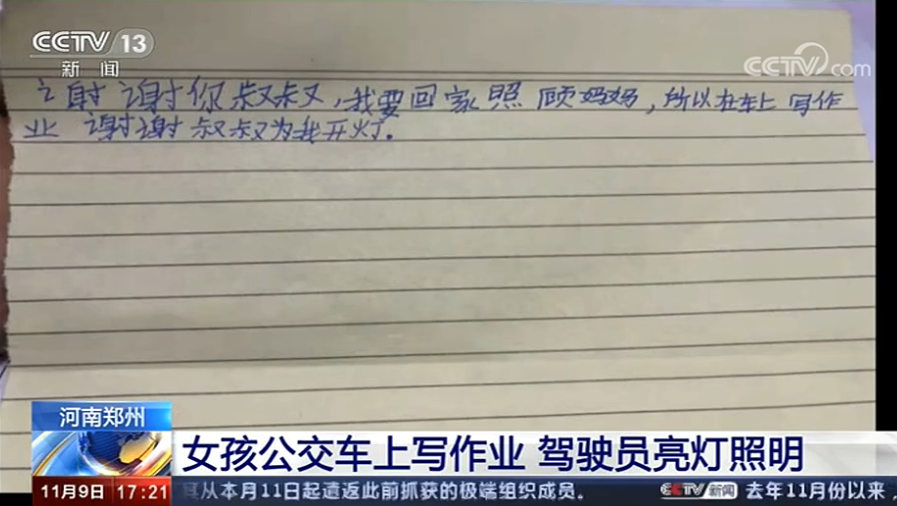 CCTV 13
新闻
CCTV.com
谢谢你叔叔,我要回家照顾妈妈,所以在车上写作
业 谢谢叔叔为我开灯.
河南郑州
女孩公交车上写作业 驾驶员亮灯照明
11月9日 17:21
耳从本月11日起遣返此前抓获的极端组织成员。 CCTV 新闻 去年11月份以来,